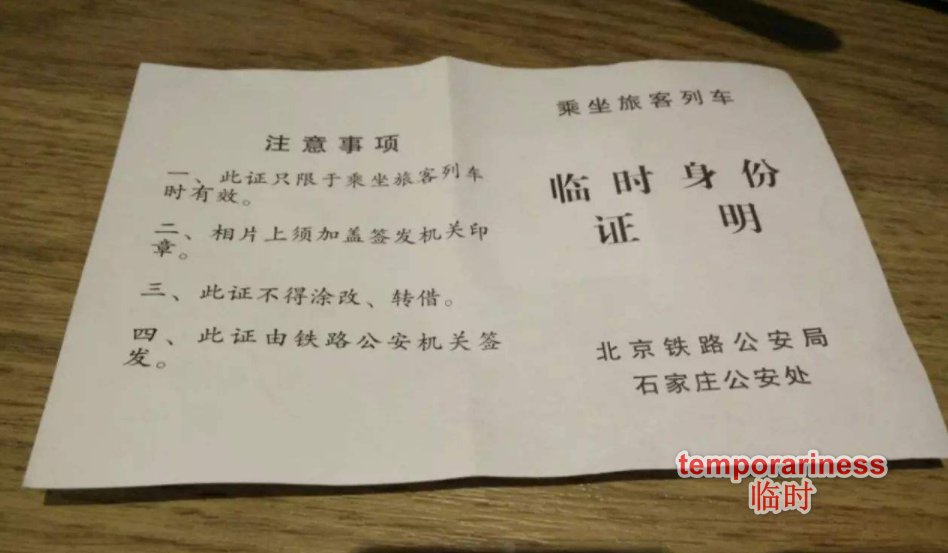 注意事项
一、此证只限于乘坐旅客列车
时有效。
二、相片上须加盖签发机关印
章。
三、此证不得涂改、转借。
四、此证由铁路公安机关签
发。
乘坐旅客列车
临时身份
证明
北京铁路公安局
石家庄公安处
temporariness
临时